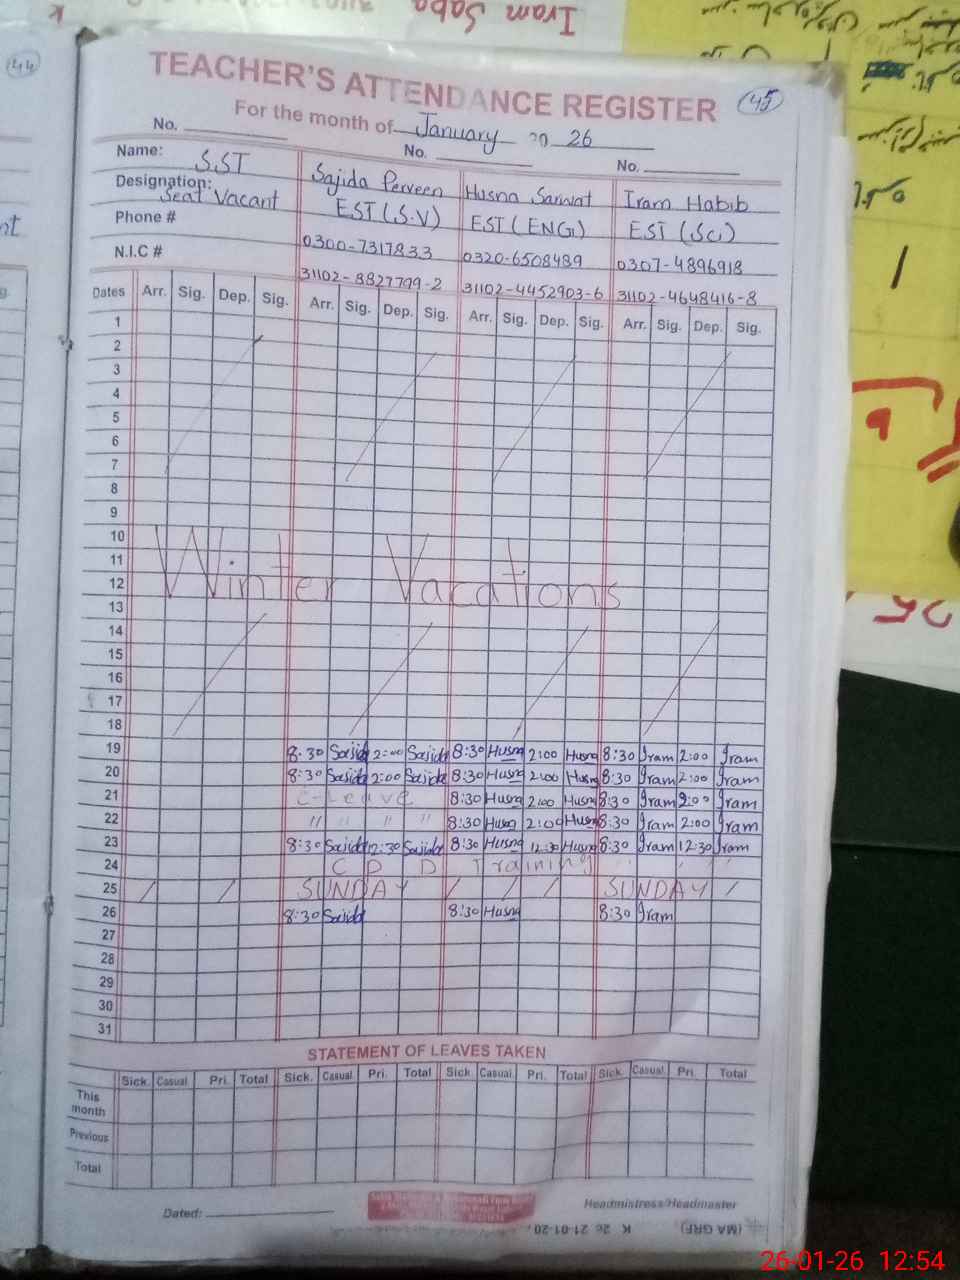 44
Iram Saba
TEACHER'S ATTENDANCE REGISTER
45
For the month of January 20 26
No. No. No.
Name: SST Sajida Perveen Husna Sarwat Iram Habib
Designation: Seat Vacant EST (S.V) EST (ENG) EST (Sci)
Phone # 0300-7317833 0320-6508489 0307-4896918
N.I.C # 31102-8827799-2 31102-4452903-6 31102-4648416-8
Dates Arr. Sig. Dep. Sig. Arr. Sig. Dep. Sig. Arr. Sig. Dep. Sig. Arr. Sig. Dep. Sig.
1
2
3
4
5
6
7
8
9
10
11
12 Winter Vacations
13
14
15
16
17
18
19 8:30 Sajida 2:00 Sajida 8:30 Husna 2:00 Husna 8:30 Iram 2:00 Iram
20 8:30 Sajida 2:00 Sajida 8:30 Husna 2:00 Husna 8:30 Iram 2:00 Iram
21 C-Leave 8:30 Husna 2:00 Husna 8:30 Iram 2:00 Iram
22 " " " " 8:30 Husna 2:00 Husna 8:30 Iram 2:00 Iram
23 8:30 Sajida 12:30 Sajida 8:30 Husna 12:30 Husna 8:30 Iram 12:30 Iram
24 C P D Training " " "
25 / / SUNDAY / / / SUNDAY /
26 8:30 Sajida 8:30 Husna 8:30 Iram
27
28
29
30
31
STATEMENT OF LEAVES TAKEN
Sick. Casual Pri. Total Sick. Casual Pri. Total Sick. Casual Pri. Total Sick. Casual Pri. Total
This month
Previous
Total
Dated: Headmistress/Headmaster
26-01-26 12:54